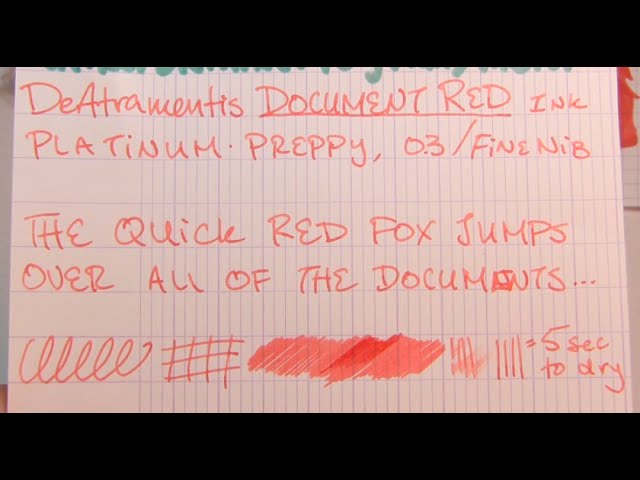 DeAtramentis DOCUMENT RED INK
PLATINUM · PREPPY, 0.3/FINE NIB
THE QUICK RED FOX JUMPS
OVER ALL OF THE DOCUMENTS...
= 5 sec
to dry